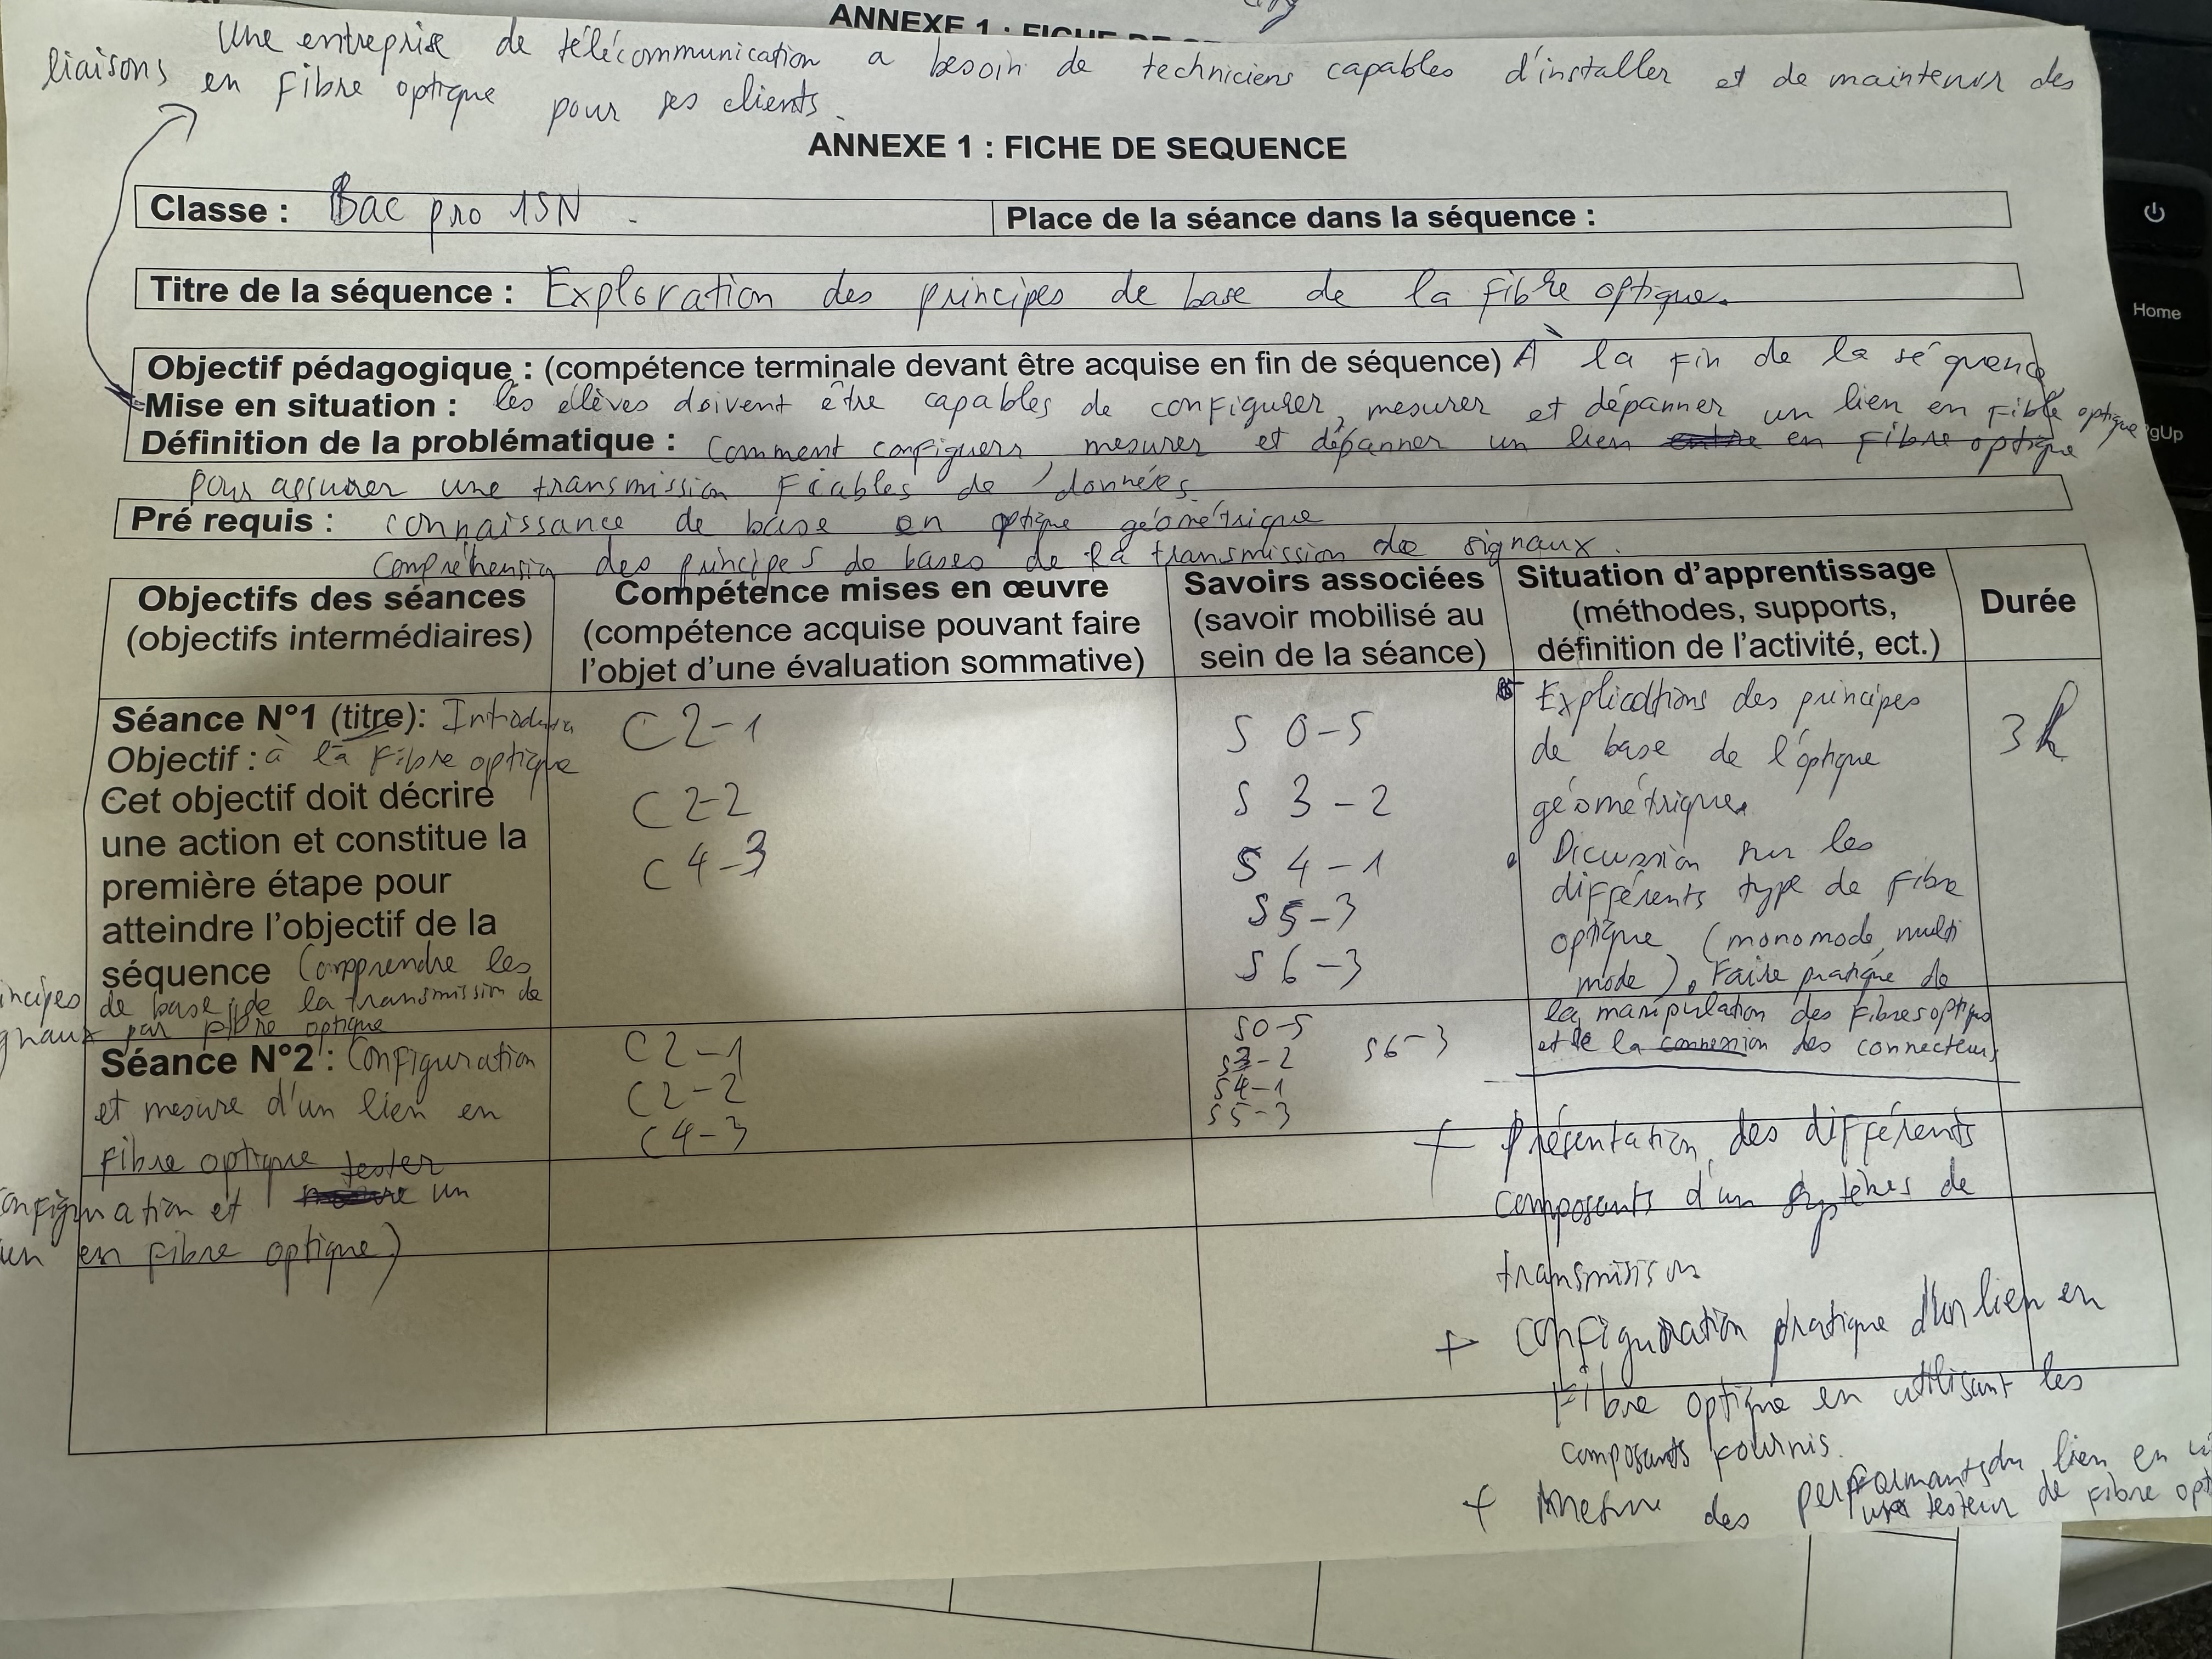 ANNEXE 1 : FICHE DE
Une entreprise de télécommunication a besoin de techniciens capables d'installer et de maintenir des
liaisons en fibre optique pour ses clients.
ANNEXE 1 : FICHE DE SEQUENCE
Classe : Bac pro 1SN
Place de la séance dans la séquence :
Titre de la séquence : Exploration des principes de base de la fibre optique.
Objectif pédagogique : (compétence terminale devant être acquise en fin de séquence) À la fin de la séquence
Mise en situation : les élèves doivent être capables de configurer, mesurer et dépanner un lien en fibre optique
Définition de la problématique : Comment configuers mesurer et dépanner un lien en fibre optique
pour assurer une transmission fiables de données
Pré requis : connaissance de base en optique géométrique
Compréhension des principes de bases de la transmission de signaux.
Objectifs des séances
(objectifs intermédiaires)
Compétence mises en œuvre
(compétence acquise pouvant faire
l'objet d'une évaluation sommative)
Savoirs associées
(savoir mobilisé au
sein de la séance)
Situation d'apprentissage
(méthodes, supports,
définition de l'activité, ect.)
Durée
Séance N°1 (titre):
Objectif : à la fibre optique
Cet objectif doit décrire
une action et constitue la
première étape pour
atteindre l'objectif de la
séquence (compprendre les
incipes de base de la transmission de
gnaux par fibre optique
C2-1
C2-2
C4-3
S 0-5
S 3-2
S 4-1
S5-3
S6-3
Explicdtions des principes
de base de l'optique
géométrique.
Dicussion sur les
différents type de fibre
optique (monomode, multi
mode). Faire pratique de
la manipulation des fibres optiques
et de la connexion des connecteurs
3h
Séance N°2 : Configuration
et mesure d'un lien en
fibre optique tester
onfiguration et un
en fibre optique)
C2-1
C2-2
C4-3
S0-5
S3-2
S4-1
S5-3
S6-3
+ Présentation des différents
composants d'un systèmes de
transmission
+ Configuration pratique d'un lien en
fibre optique en utilisant les
composants fournis.
+ Mesure des performants du lien en
testeur de fibre opt
Home
gUp